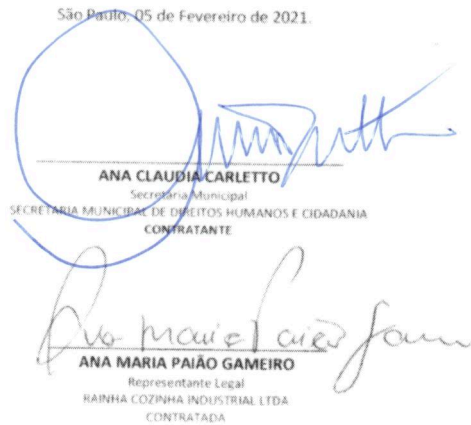 São Paulo, 05 de Fevereiro de 2021.
ANA CLAUDIA CARLETTO
Secretária Municipal
SECRETARIA MUNICIPAL DE DIREITOS HUMANOS E CIDADANIA
CONTRATANTE
Ana Maria Paião Gam
ANA MARIA PAIÃO GAMEIRO
Representante Legal
RAINHA COZINHA INDUSTRIAL LTDA
CONTRATADA